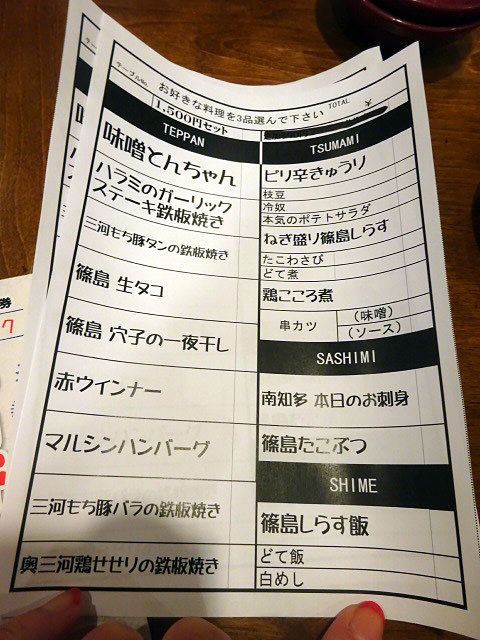 テーブルNo.
お好きな料理を3品選んで下さい
TOTAL
¥
1,500円セット
TEPPAN
味噌とんちゃん
ハラミのガーリック
ステーキ鉄板焼き
三河もち豚タンの鉄板焼き
篠島 生タコ
篠島 穴子の一夜干し
赤ウインナー
マルシンハンバーグ
三河もち豚バラの鉄板焼き
奥三河鶏せせりの鉄板焼き
TSUMAMI
ピリ辛きゅうり
枝豆
冷奴
本気のポテトサラダ
ねぎ盛り篠島しらす
たこわさび
どて煮
鶏こころ煮
串カツ
(味噌)
(ソース)
SASHIMI
南知多 本日のお刺身
篠島たこぶつ
SHIME
篠島しらす飯
どて飯
白めし
券